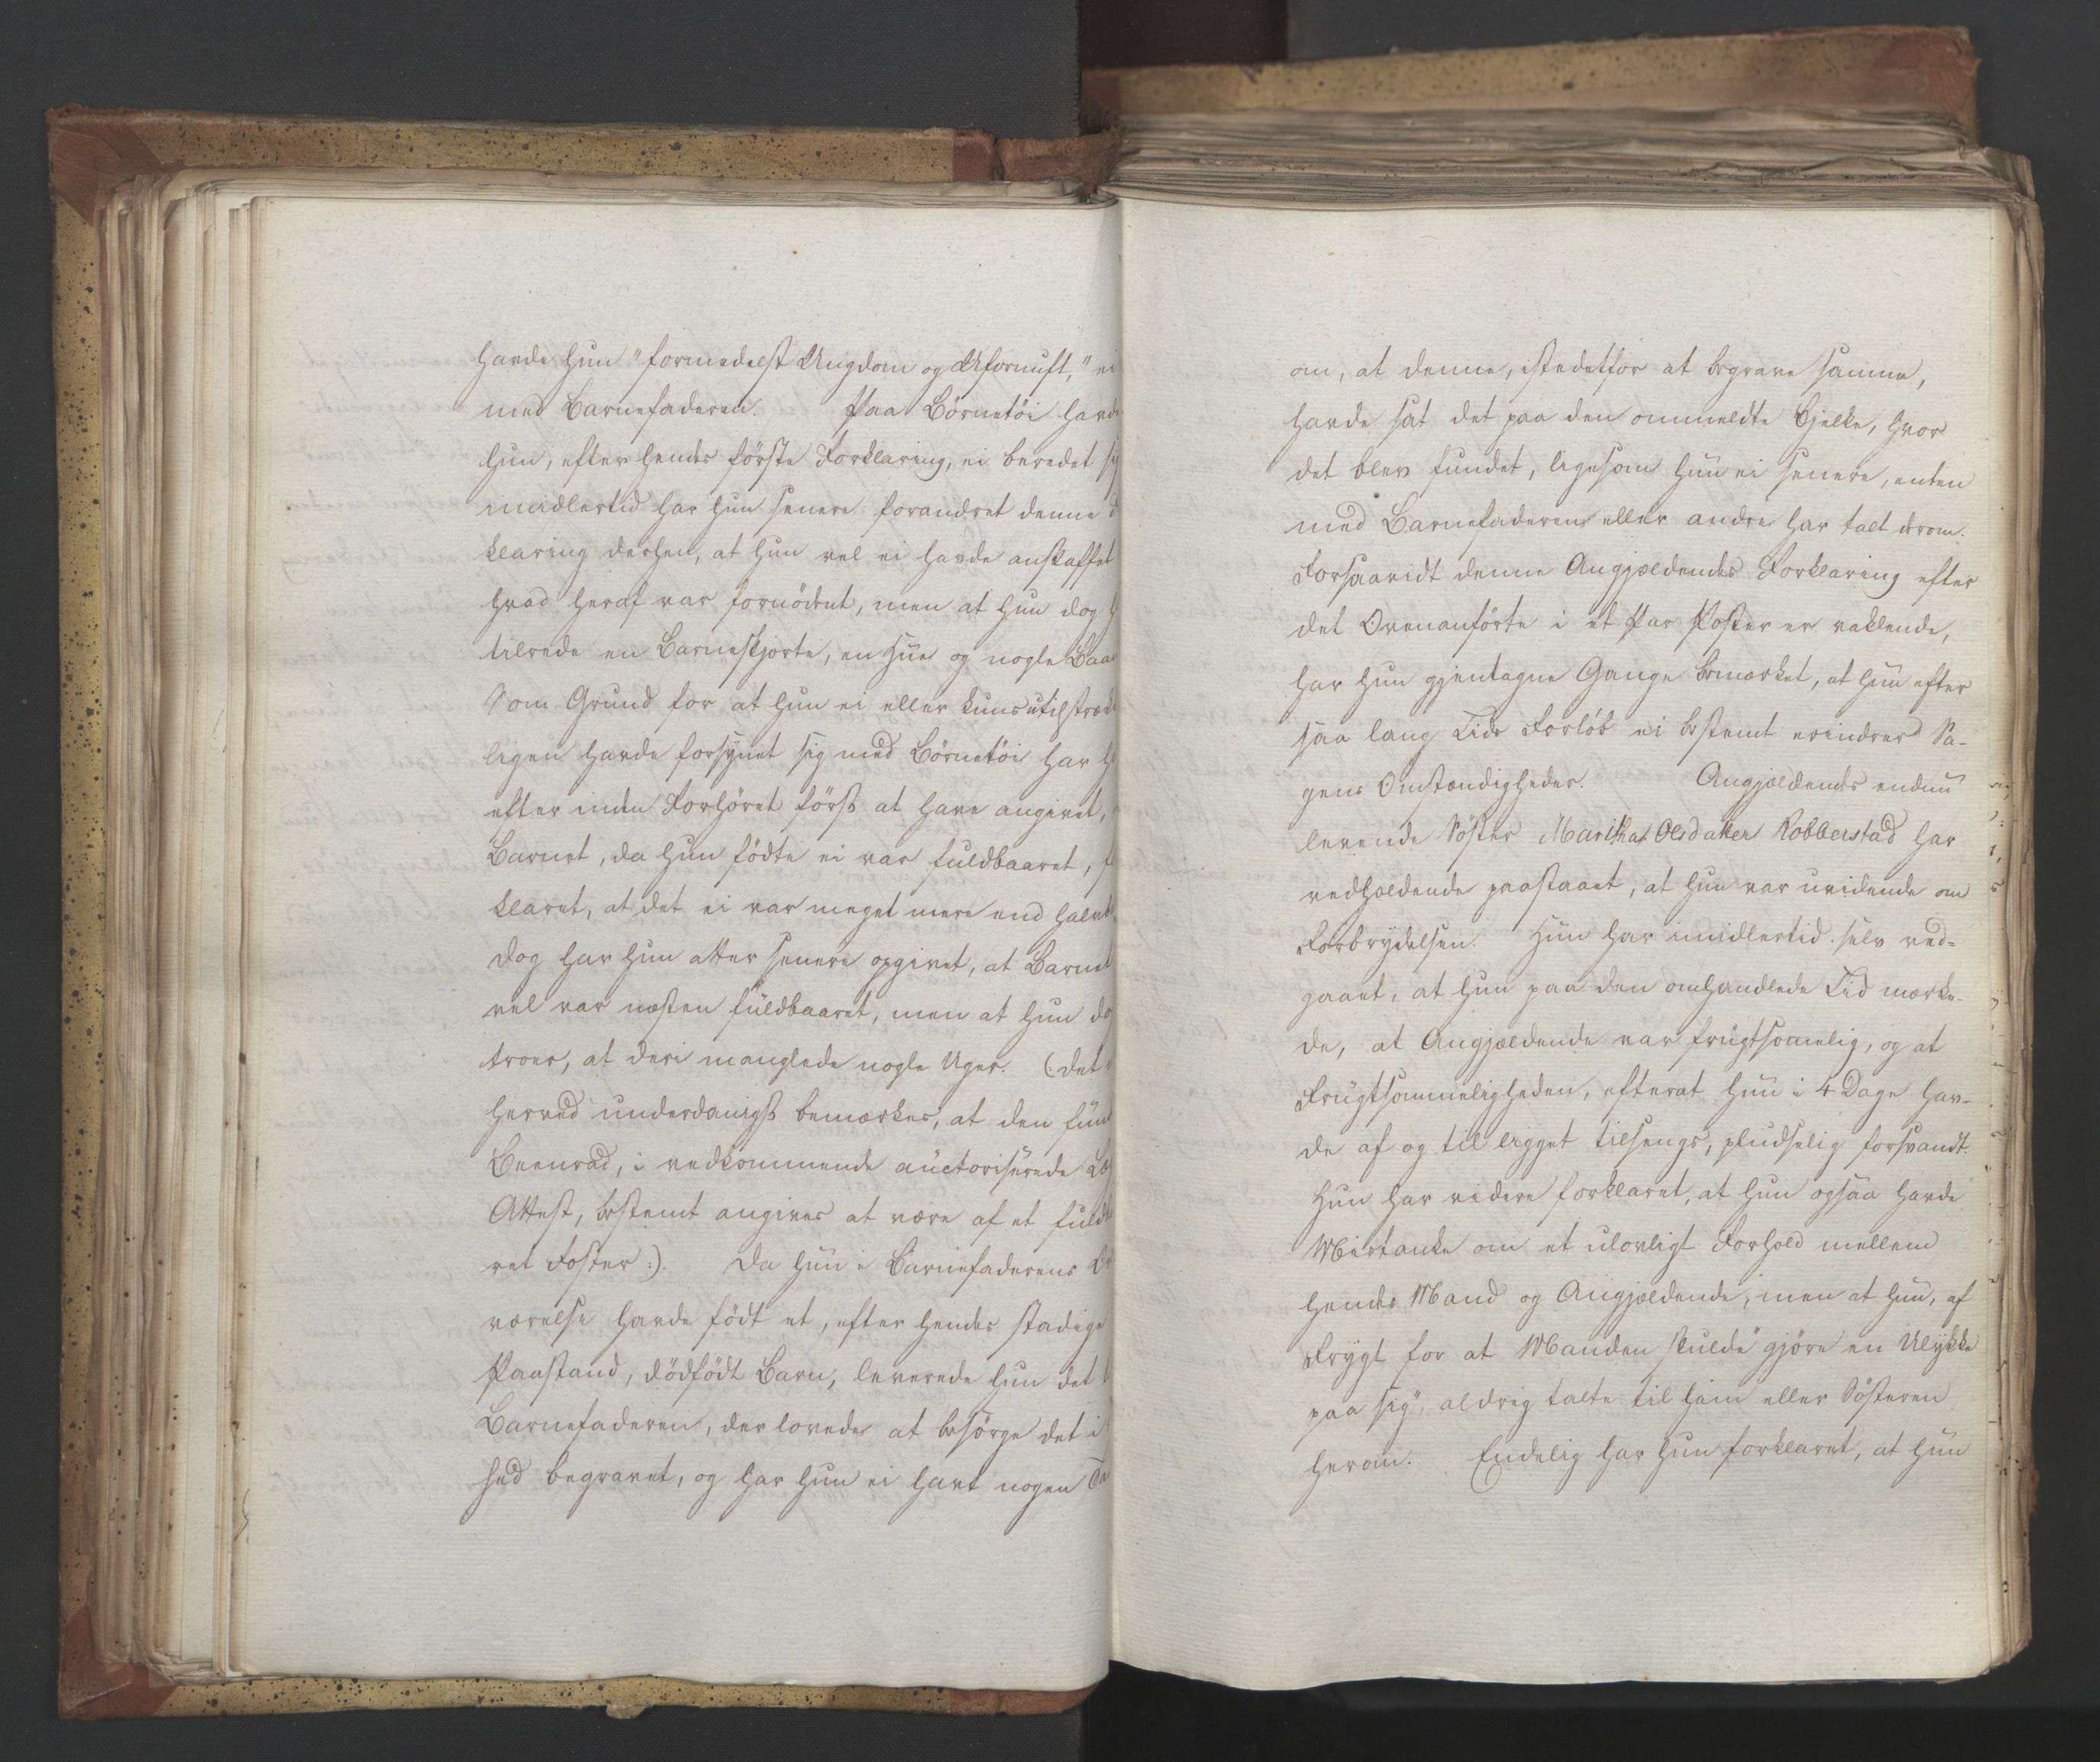 havde hun "formedelst Ungdom og Ufornuft," ei
med Barnefaderen. Paa Börnetöi havde
hun, efter hendes förste Forklaring, ei beredet sig
imidlertid har hun senere forandret denne
klaring derhen, at hun vel ei havde anskaffet
hvad heraf var fornödent, men at hun dog h
tilrede en Barneskjorte, en Hue og nogle
Som Grund for at hun ei eller kuns utilstræk
ligen havde forsynet sig med Börnetöi har h
efter inden Forhöret först at have angivet,
Barnet, da hun födte ei var fuldbaaret, f
klaret, at det ei var meget mere end halv
dog har hun atter senere opgivet, at Barnet
vel var næsten fuldbaaret, men at hun do
troer, at deri manglede nogle Uger. (: det
herved underdanigst bemærkes, at den fun
Beenrad, i vedkommende auctoriserede Læ
Attest, bestemt angives at være af et fuld
ret Foster:). Da hun i Barnefaderens
værelse havde födt et, efter hendes stadige
Paastand, dödfödt Barn, leverede hun det t
Barnefaderen, der lovede at besörge det i
hed begravet, og har hun ei havt nogen
om, at denne, istedetfor at begrave samme,
havde sat det paa den ommeldte Bjelke, hvor
det blev fundet, ligesom hun ei senere, enten
med Barnefaderen eller andre har talt derom.
Forsaavidt denne Angjældendes Forklaring efter
det Ovenanförte i et Par Poster er vaklende,
har hun gjentagne Gange bemærket, at hun efter
saa lang Tids Forlöb ei bestemt erindrer Sa-
gens Omstændigheder. Angjældendes endnu
levende Söster Maritha Olsdatter Robberstad har
vedholdende paastaaet, at hun var uvidende om
Forbrydelsen. Hun har imidlertid selv ved-
gaaet, at hun paa den omhandlede Tid mærke-
de, at Angjældende var frugtsommelig, og at
Frugtsommeligheden, efterat hun i 4 Dage hav-
de af og til ligget tilsengs, pludselig forsvandt.
Hun har videre forklaret, at hun ogsaa havde
Mistanke om et ulovligt Forhold mellem
hendes Mand og Angjældende, men at hun, af
Frygt for at Manden skulde "gjöre en Ulykke
paa sig", aldrig talte til ham eller Sösteren
herom. Endelig har hun forklaret, at hun